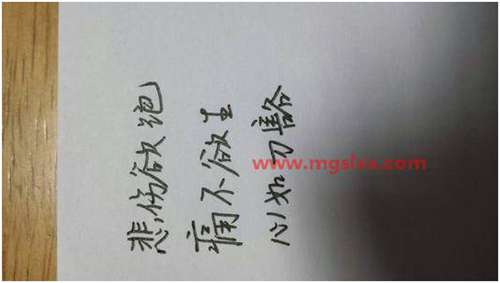 悲伤欲饱
痛不欲生
心如刀豁
www.mgslss.com